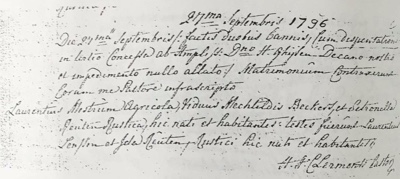 27ma Septembris 1796
Die 27ma Septembris, factis duobus bannis, cum dispensatione
in tertio concessa ab Ampliss: Dno H. Ghijsen Decano nostro
et impedimento nullo allato, Matrimonium Contraxerunt
Coram me Pastore infrascripto
Laurentius Mostrum Agricola, Viduus Mechtildis Beckers, et Petronella
Reuten Rustica, hic nati et habitantes: testes fuerunt Laurentius
et Reuten Rustici hic nati et habitantes
H. H. Clermonts Pastor